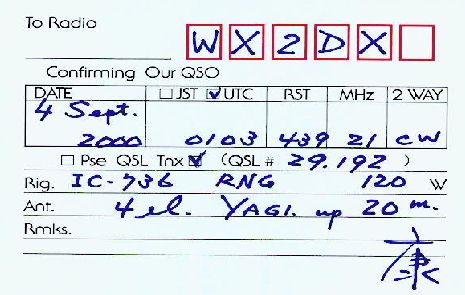 To Radio WX2DX
Confirming Our QSO
DATE □ JST ☑ UTC RST MHz 2 WAY
4 Sept.
2000 0103 439 21 CW
□ Pse QSL Tnx ☑ (QSL # 29.192 )
Rig. IC-736 RNG 120 W
Ant. 4 el. YAGI. up 20 m.
Rmks.
康